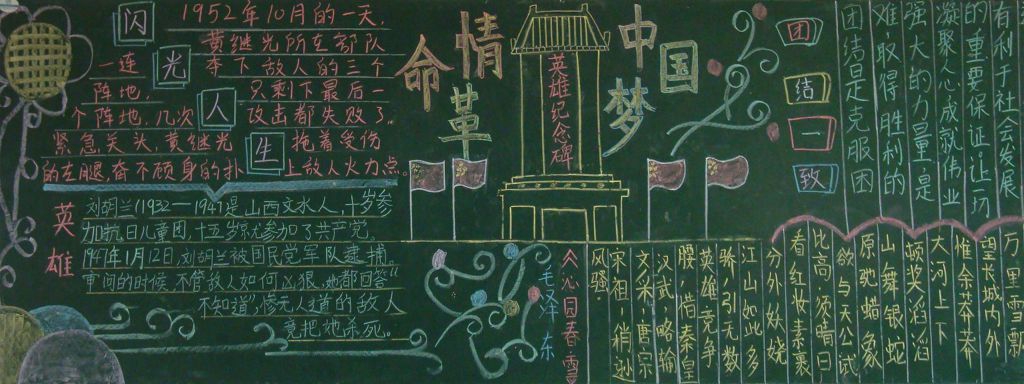 闪光人生
1952年10月的一天,
黄继光所在部队
一连 夺下敌人的三个
阵地, 只剩下最后一
个阵地,几次 攻击都失败了。
紧急关头,黄继光 拖着受伤
的左腿,奋不顾身的扑 上敌人火力点。
英雄
刘胡兰(1932—1947)是山西文水人,十岁参
加抗日儿童团,十五岁就参加了共产党。
1947年1月12日,刘胡兰被国民党军队逮捕,
审问的时候,不管敌人如何凶狠,她都回答“
不知道”,惨无人道的敌人
竟把她杀死。
革命情
英雄纪念碑
中国梦
团结一致
团结是克服困
难,取得胜利的
强大的力量,是
凝聚人心成就伟业
的重要保证,让一切
有利于社会发展
沁园春·雪
毛泽东
万里雪飘
望长城内外
惟余莽莽
大河上下
顿奖滔滔
山舞银蛇
原驰蜡象
欲与天公试
比高,须晴日
看红妆素裹
分外妖娆
江山如此多
骄,引无数
英雄竞争
腰,惜秦皇
汉武,略输
文采,唐宗
宋祖,稍逊
风骚。